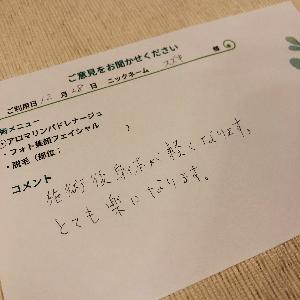 ご意見をお聞かせください
ご利用日 12 月 28 日 ニックネーム スズキ 様
術メニュー
アロマリンパドレナージュ
・フォト美顔フェイシャル
・脱毛（部位： ）
コメント
施術後身体が軽くなります。
とても楽になります。